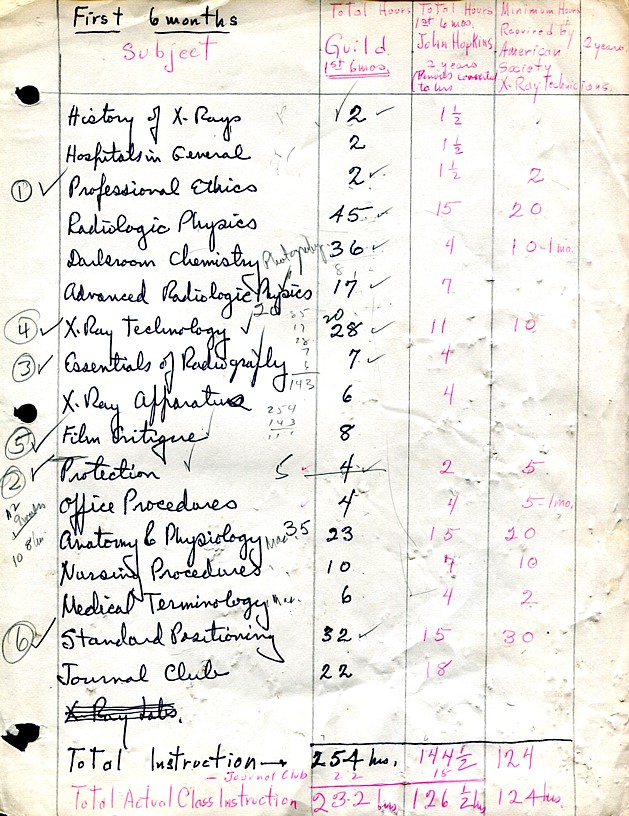 First 6 months
Subject
Total Hours
Guild
1st 6 mos.
Total Hours
1st 6 mos.
John Hopkins
2 years
Periods converted
to hrs
Minimum Hours
Required by
American
Society
X-Ray Technicians.
2 years.
History of X-Rays 2 1 1/2
Hospitals in General 2 1 1/2
① Professional Ethics 2 1 1/2 2
Radiologic Physics 45 15 20
Darkroom Chemistry Photography 36 4 10-1 mo.
8
Advanced Radiologic Physics 17 7
20
④ X-Ray Technology 28 11 10
20
③ Essentials of Radiography 7 4
143
X-Ray Apparatus 6 4
254
143
111
⑤ Film Critique 8
② Protection 5 4 2 5
Office Procedures 4 4 5-1 mo.
Anatomy & Physiology 35 23 15 20
Nursing Procedures 10 7 10
Medical Terminology 6 4 2
⑥ Standard Positioning 32 15 30
Journal Club 22 18
X-Ray
Total Instruction → 254 hrs. 144 1/2 124
- Journal Club 22 18
Total Actual Class Instruction 232 hrs 126 1/2 hs 124 hrs.